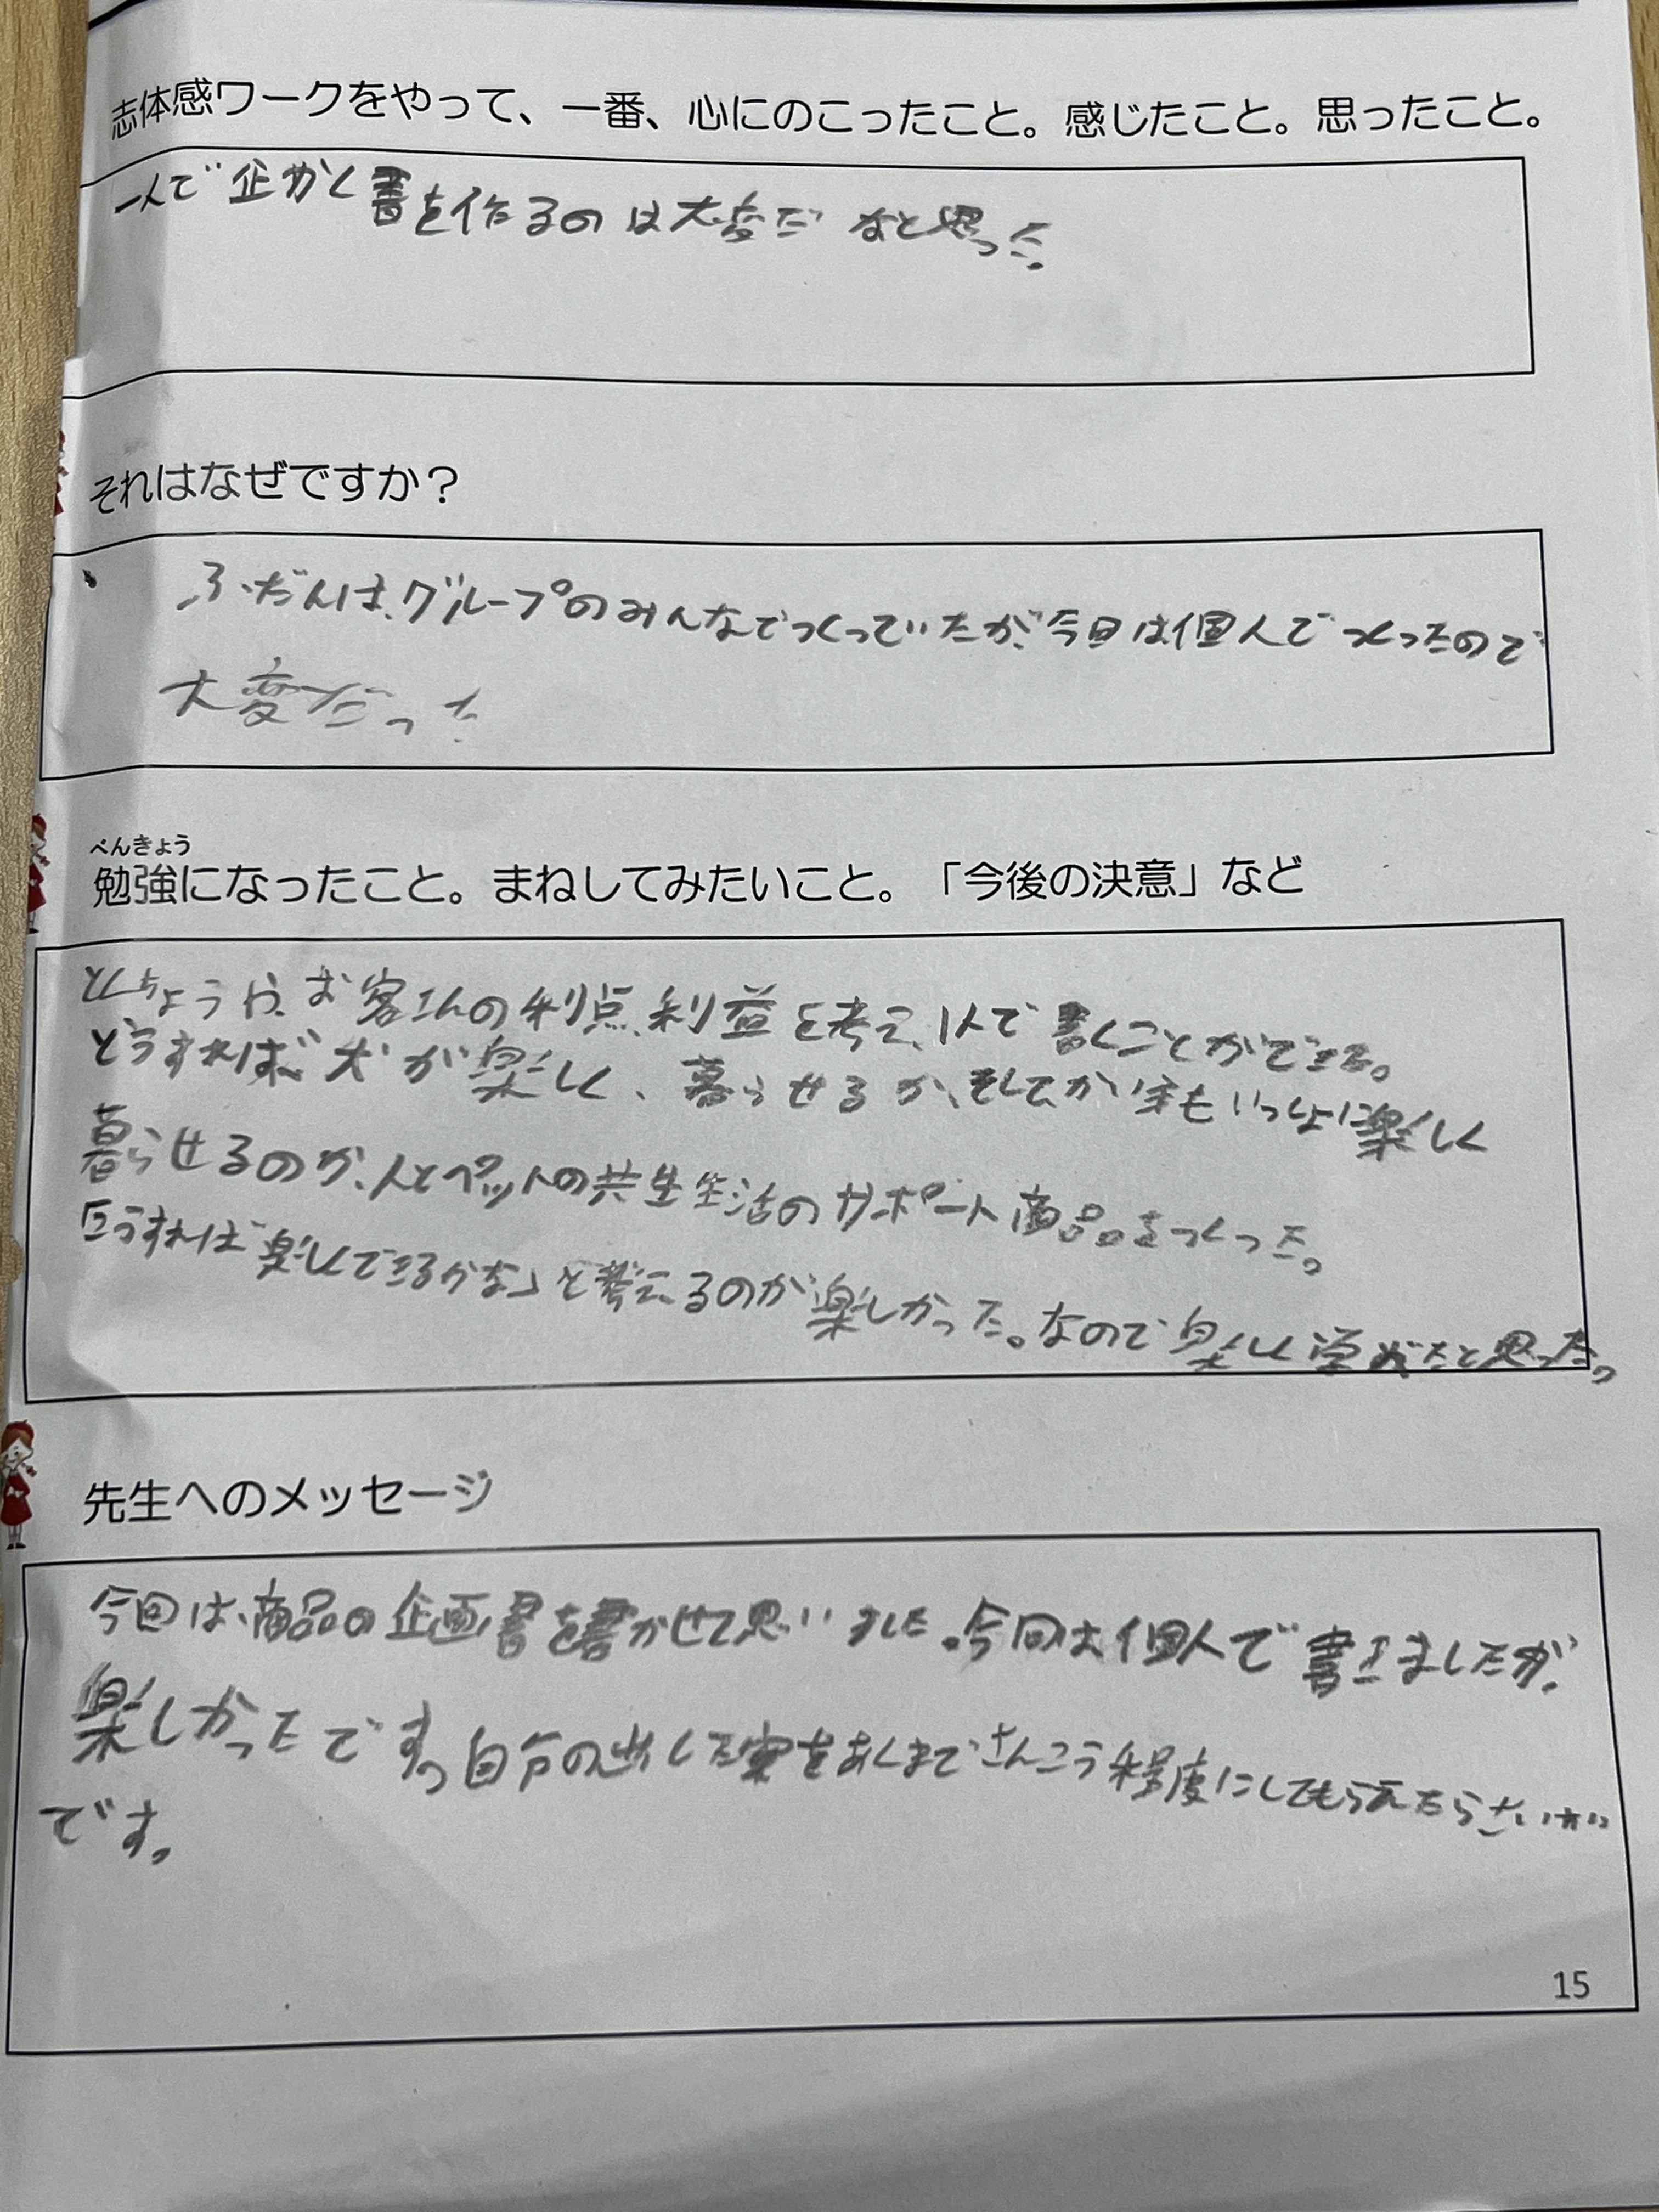 志体感ワークをやって、一番、心にのこったこと。感じたこと。思ったこと。
一人で企かく書を作るのは大変だなと思った。
それはなぜですか？
ふだんは、グループのみんなでつくっていたが、今日は個人でつくったので
大変だった
べんきょう
勉強になったこと。まねしてみたいこと。「今後の決意」など
とくちょうや、お客さんの利点、利益を考え、1人で書くことができる。
どうすれば、犬が楽しく、暮らせるか、そして、かい主もいっしょに楽しく
暮らせるのか、人とペットの共生生活のサポート商品をつくった。
「こうすれば楽しくできるかな」と考えるのが楽しかった。なので楽しく学べたと思った。
先生へのメッセージ
今回は、商品の企画書を書かせて思いました。今回は個人で書きましたが、
楽しかったです。自分の出した案をあくまでさんこう程度にしてもらえたらさいわい
です。
15